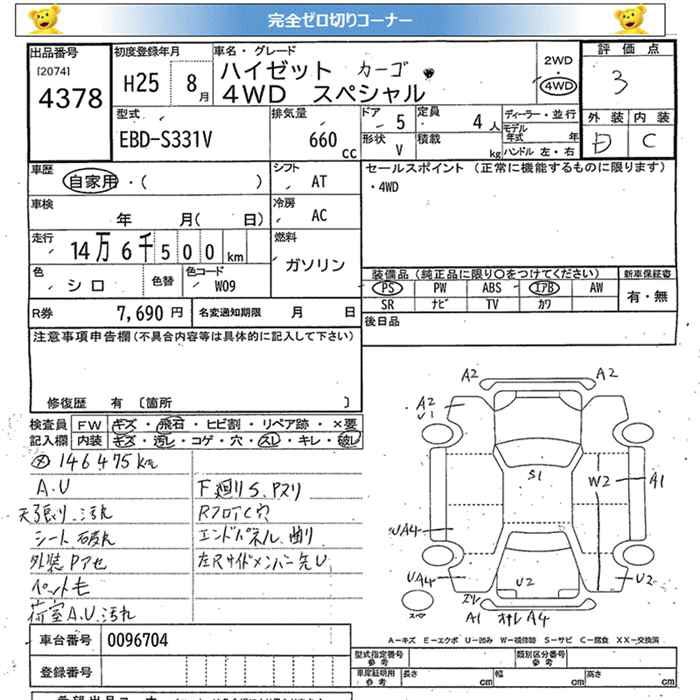 完全ゼロ切りコーナー
出品番号 初度登録年月 車名・グレード 2WD 評価点
[2074]
4378 H25 8月 ハイゼット カーゴ 4WD 3
4WD スペシャル
型式 排気量 ドア 5 定員 4人 ディーラー・並行 外装 内装
EBD-S331V 660cc 形状 V 積載 kg モデル年式 年 D C
ハンドル 左・右
車歴 シフト セールスポイント (正常に機能するものに限ります)
自家用・( ) AT ・4WD
車検 冷房
年 月( 日) AC
走行 14万6千500km 燃料
ガソリン
色 シロ 色替 色コード W09
装備品(純正品に限り○をつけてください) 新車保証書
PS PW ABS エアB AW 有・無
SR ナビ TV カワ
R券 7,690円 名変通知期限 月 日 後日品
注意事項申告欄(不具合内容等は具体的に記入して下さい)
修復歴 有 〔箇所 〕
検査員 FW キズ・飛石・ヒビ割・リペア跡・×要
記入欄 内装 キズ・汚レ・コゲ・穴・スレ・キレ・破レ
146475km
A.U 下廻りS.Pスリ
天張り.汚れ RフロアC穴
シート破れ エンドパネル.曲り
外装Pアセ 左Rサイドメンバー先U
ペット毛
荷室A.U.汚れ
A2 A2
A2
U1
S1 W2 A1
UA4
UA4 U2 U2
スペア A1 A4
A-キズ E-エクボ U-凹み W-補修跡 S-サビ C-腐食 XX-交換済
車台番号 0096704
型式指定番号 参考 類別区分番号 参考
登録番号
車庫証明用 参考 長さ cm 幅 cm 高さ cm